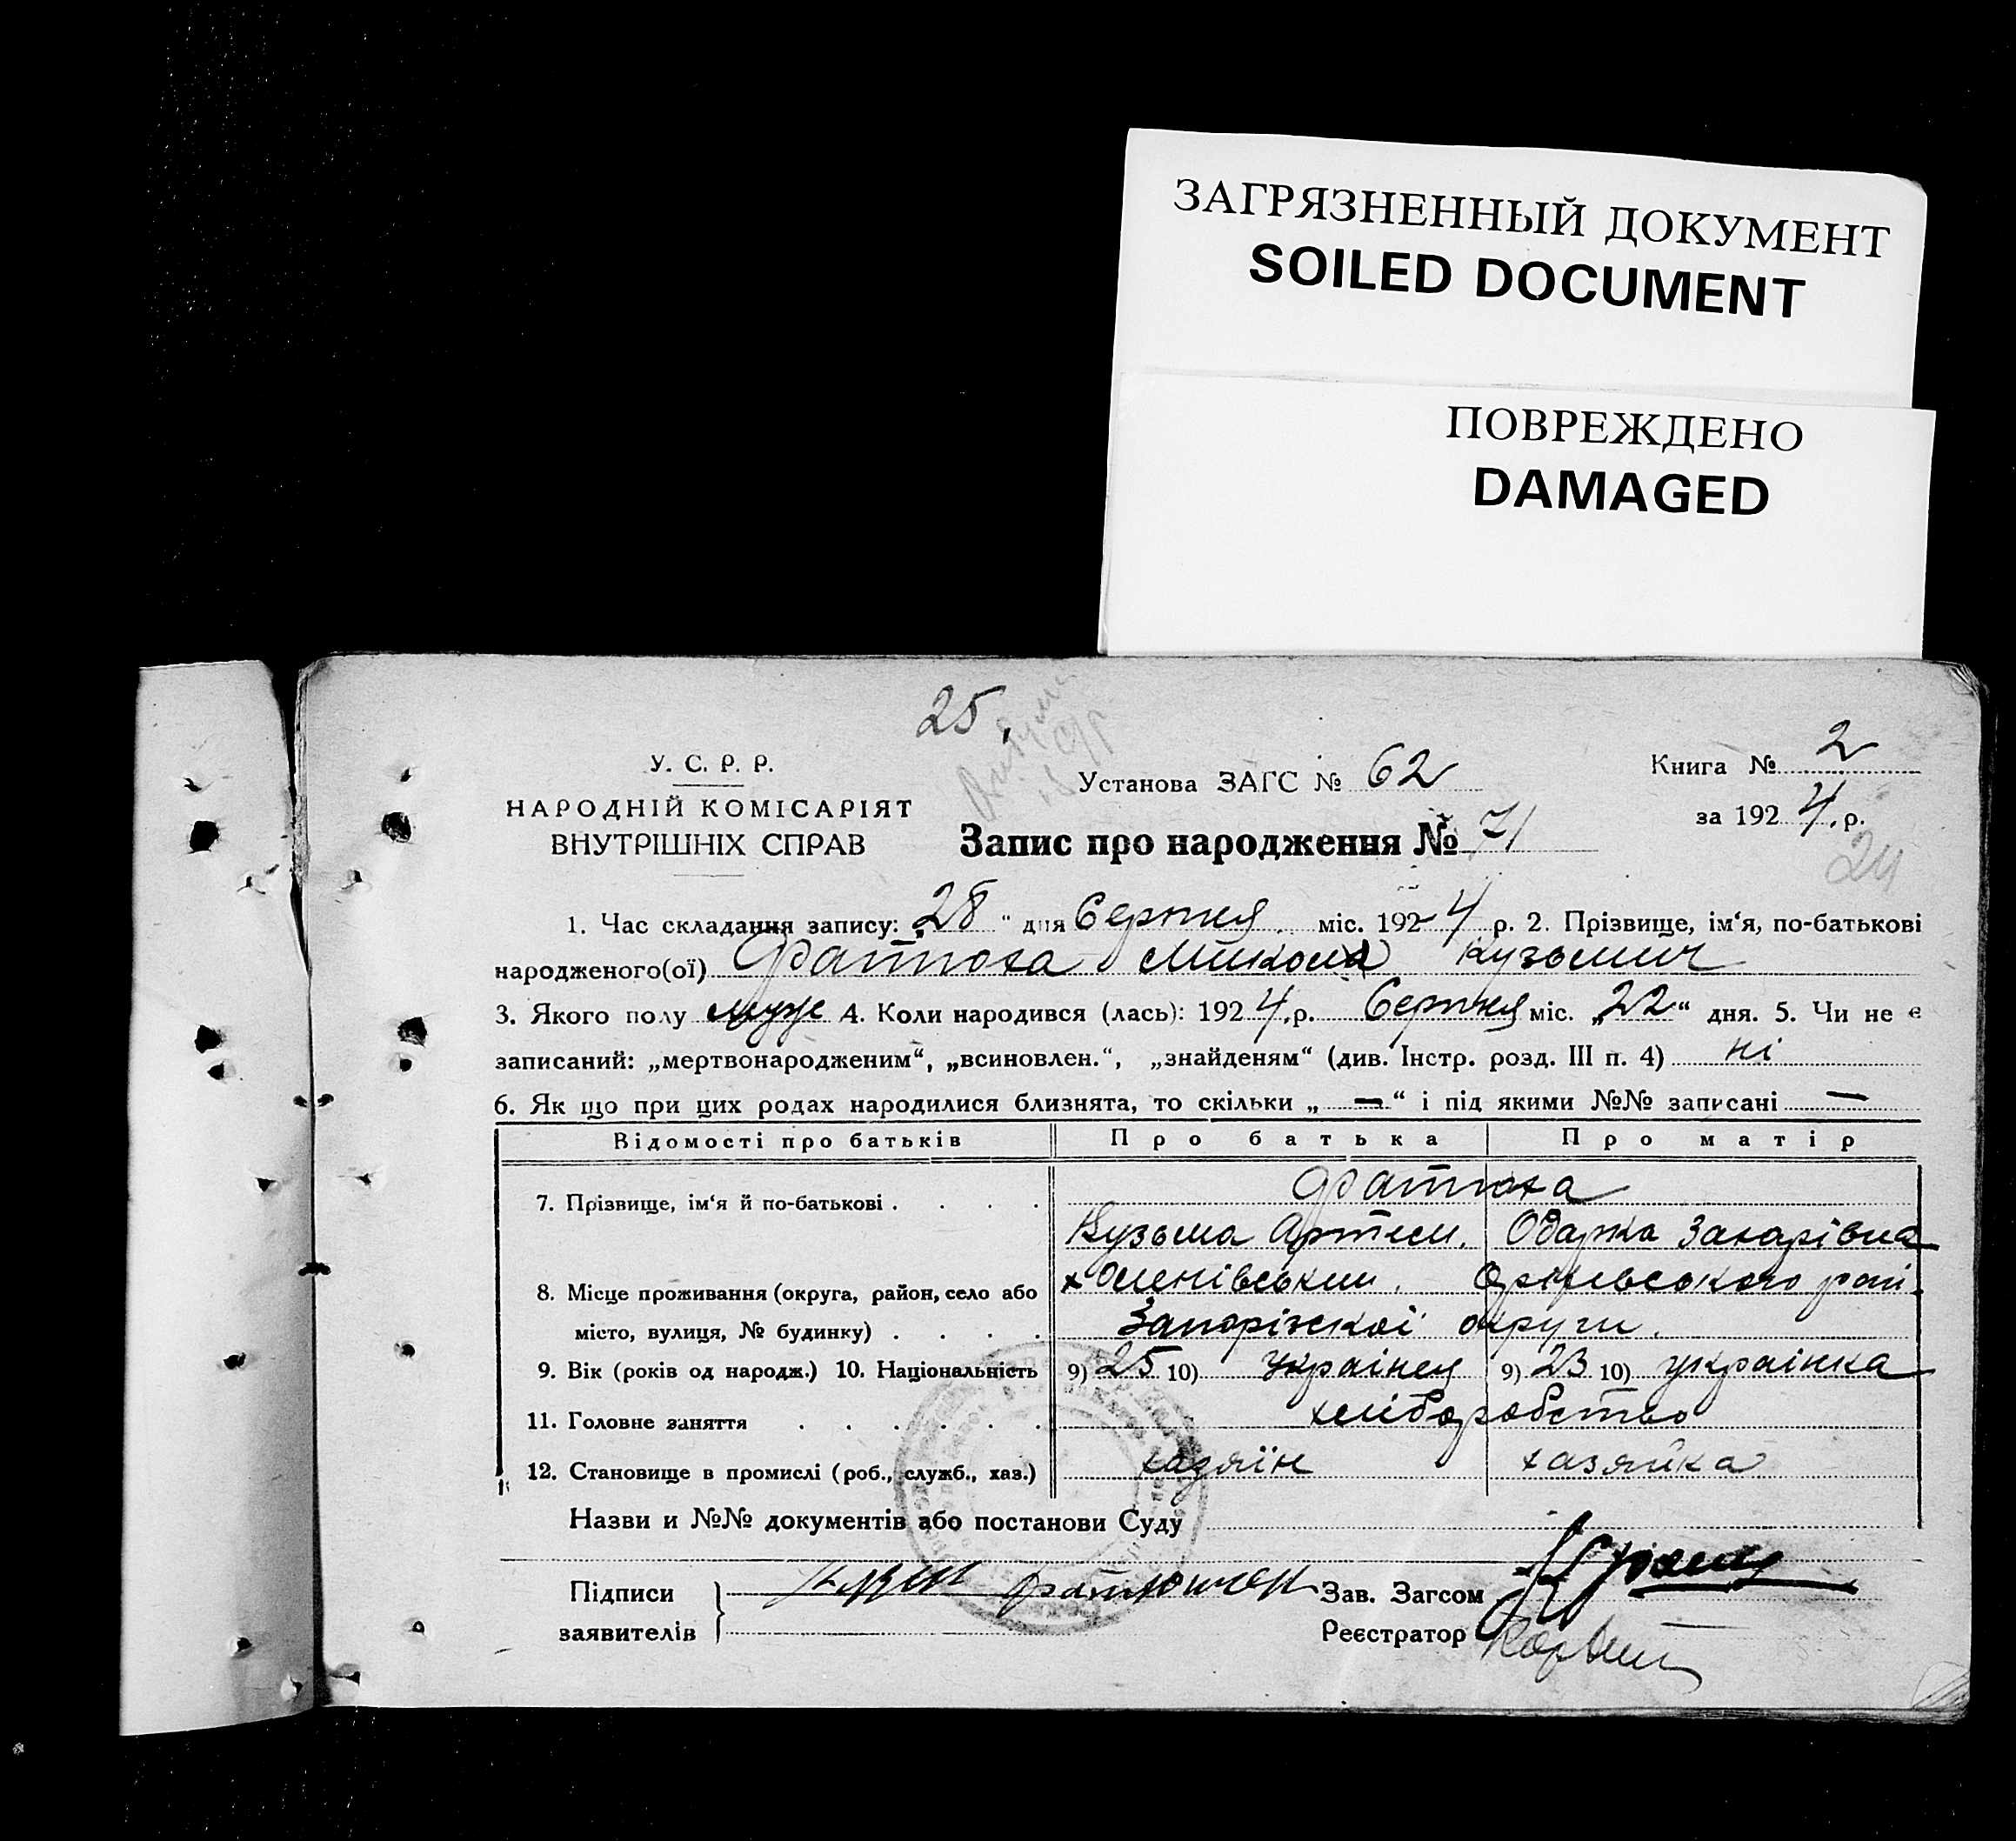 ЗАГРЯЗНЕННЫЙ ДОКУМЕНТ
SOILED DOCUMENT
ПОВРЕЖДЕНО
DAMAGED
25,
У. С. Р. Р.
НАРОДНІЙ КОМІСАРІЯТ
ВНУТРІШНІХ СПРАВ
Установа ЗАГС № 62
Запис про народження № 71
Книга № 2
за 1924 р.
24
1. Час складання запису: „28“ дня Серпня міс. 1924 р. 2. Прізвище, ім‘я, по-батькові
народженого(ої) Фаттоха Микола Кузьмич
3. Якого полу муж 4. Коли народився (лась): 1924 р. Серпня міс. „22“ дня. 5. Чи не є
записаний: „мертвонародженим“, „всиновлен.“, „знайденям“ (див. Інстр. розд. III п. 4) ні
6. Як що при цих родах народилися близнята, то скільки „—“ і під якими №№ записані —
Відомості про батьків Про батька Про матір
7. Прізвище, ім‘я й по-батькові . . . . Фаттоха
Кузьма Артем. Одарка Захарівна
8. Місце проживання (округа, район, село або х Оленівський. Оріхівського рай.
місто, вулиця, № будинку) . . . . Запоріжскої округи.
9. Вік (років од народж.) 10. Національність 9) 25 10) Українец 9) 23 10) українка
11. Головне заняття . . . . . . хліборобство
12. Становище в промислі (роб., служб., хаз.) хазяїн хазяйка
Назви и №№ документів або постанови Суду
Підписи
заявителів
Зав. Загсом
Реєстратор